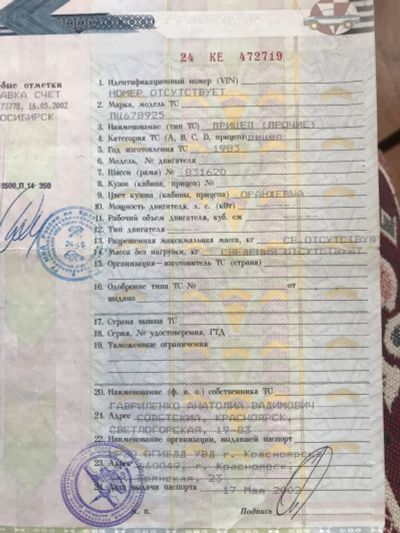 24 КЕ 472719
обые отметки
АВКА СЧЕТ
73778, 16.05.2002
ОСИБИРСК
1500,П.14 350
1. Идентификационный номер (VIN)
НОМЕР ОТСУТСТВУЕТ
2. Марка, модель ТС
ЛЦ678925
3. Наименование (тип ТС) ПРИЦЕП (ПРОЧИЕ)
4. Категория ТС (A, B, C, D, прицеп) прицеп
5. Год изготовления ТС 1983
6. Модель, № двигателя
7. Шасси (рама) № 831620
8. Кузов (кабина, прицеп) №
9. Цвет кузова (кабины, прицепа) ОРАНЖЕВЫЙ
10. Мощность двигателя, л. с. (кВт)
11. Рабочий объем двигателя, куб. см
12. Тип двигателя
13. Разрешенная максимальная масса, кг СВ.ОТСУТСТВУЮ
14. Масса без нагрузки, кг СВЕДЕНИЯ ОТСУТСТВУЮТ
15. Организация—изготовитель ТС (страна)
16. Одобрение типа ТС № от
выдано
17. Страна вывоза ТС
18. Серия, № удостоверения, ГТД
19. Таможенные ограничения
20. Наименование (ф. и. о.) собственника ТС
ГАВРИЛЕНКО АНАТОЛИЙ ВАДИМОВИЧ
21. Адрес СОВЕТСКИЙ, КРАСНОЯРСК,
СВЕТЛОГОРСКАЯ, 19-83
22. Наименование организации, выдавшей паспорт
МРЭО ОГИБДД УВД г. Красноярск
23. Адрес 660049, г. Красноярск,
Брянская, 23
24. Дата выдачи паспорта 17 Мая 2002
М. П. Подпись